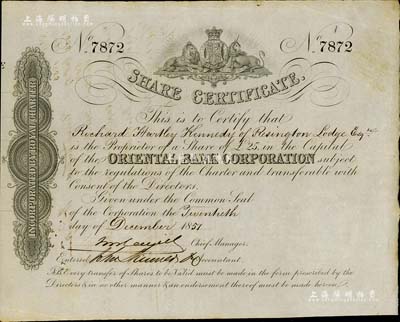 上海阳明拍卖
No. 7872 No. 7872
SHARE CERTIFICATE.
This is to Certify that
Richard Hartley Kennedy of Resington Lodge Esqre
is the Proprietor of a Share of £25, in the Capital
of the ORIENTAL BANK CORPORATION subject
to the regulations of the Charter and transferable with
Consent of the Directors.
Given under the Common Seal
of the Corporation the Twentieth
day of December 1851
Chief Manager.
Entered Accountant.
N.B. Every transfer of Shares to be Valid must be made in the form prescribed by the
Directors & in no other manner & no endorsement thereof must be made hereon.
INCORPORATED BY ROYAL CHARTER